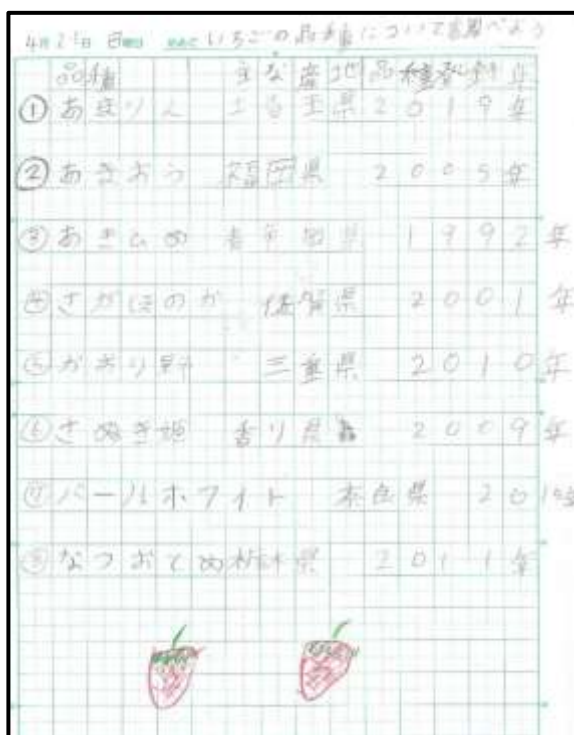 4月 日 曜日 いちごの品種について調べよう
品種 主な産地 品種登録年
①あまりん 埼玉県 2019年
②あまおう 福岡県 2005年
③あきひめ 静岡県 1992年
④さがほのか 佐賀県 2001年
⑤かおり野 三重県 2010年
⑥さぬき姫 香り県 2009年
⑦パールホワイト 奈良県 201
⑧なつおとめ 栃木県 2011年